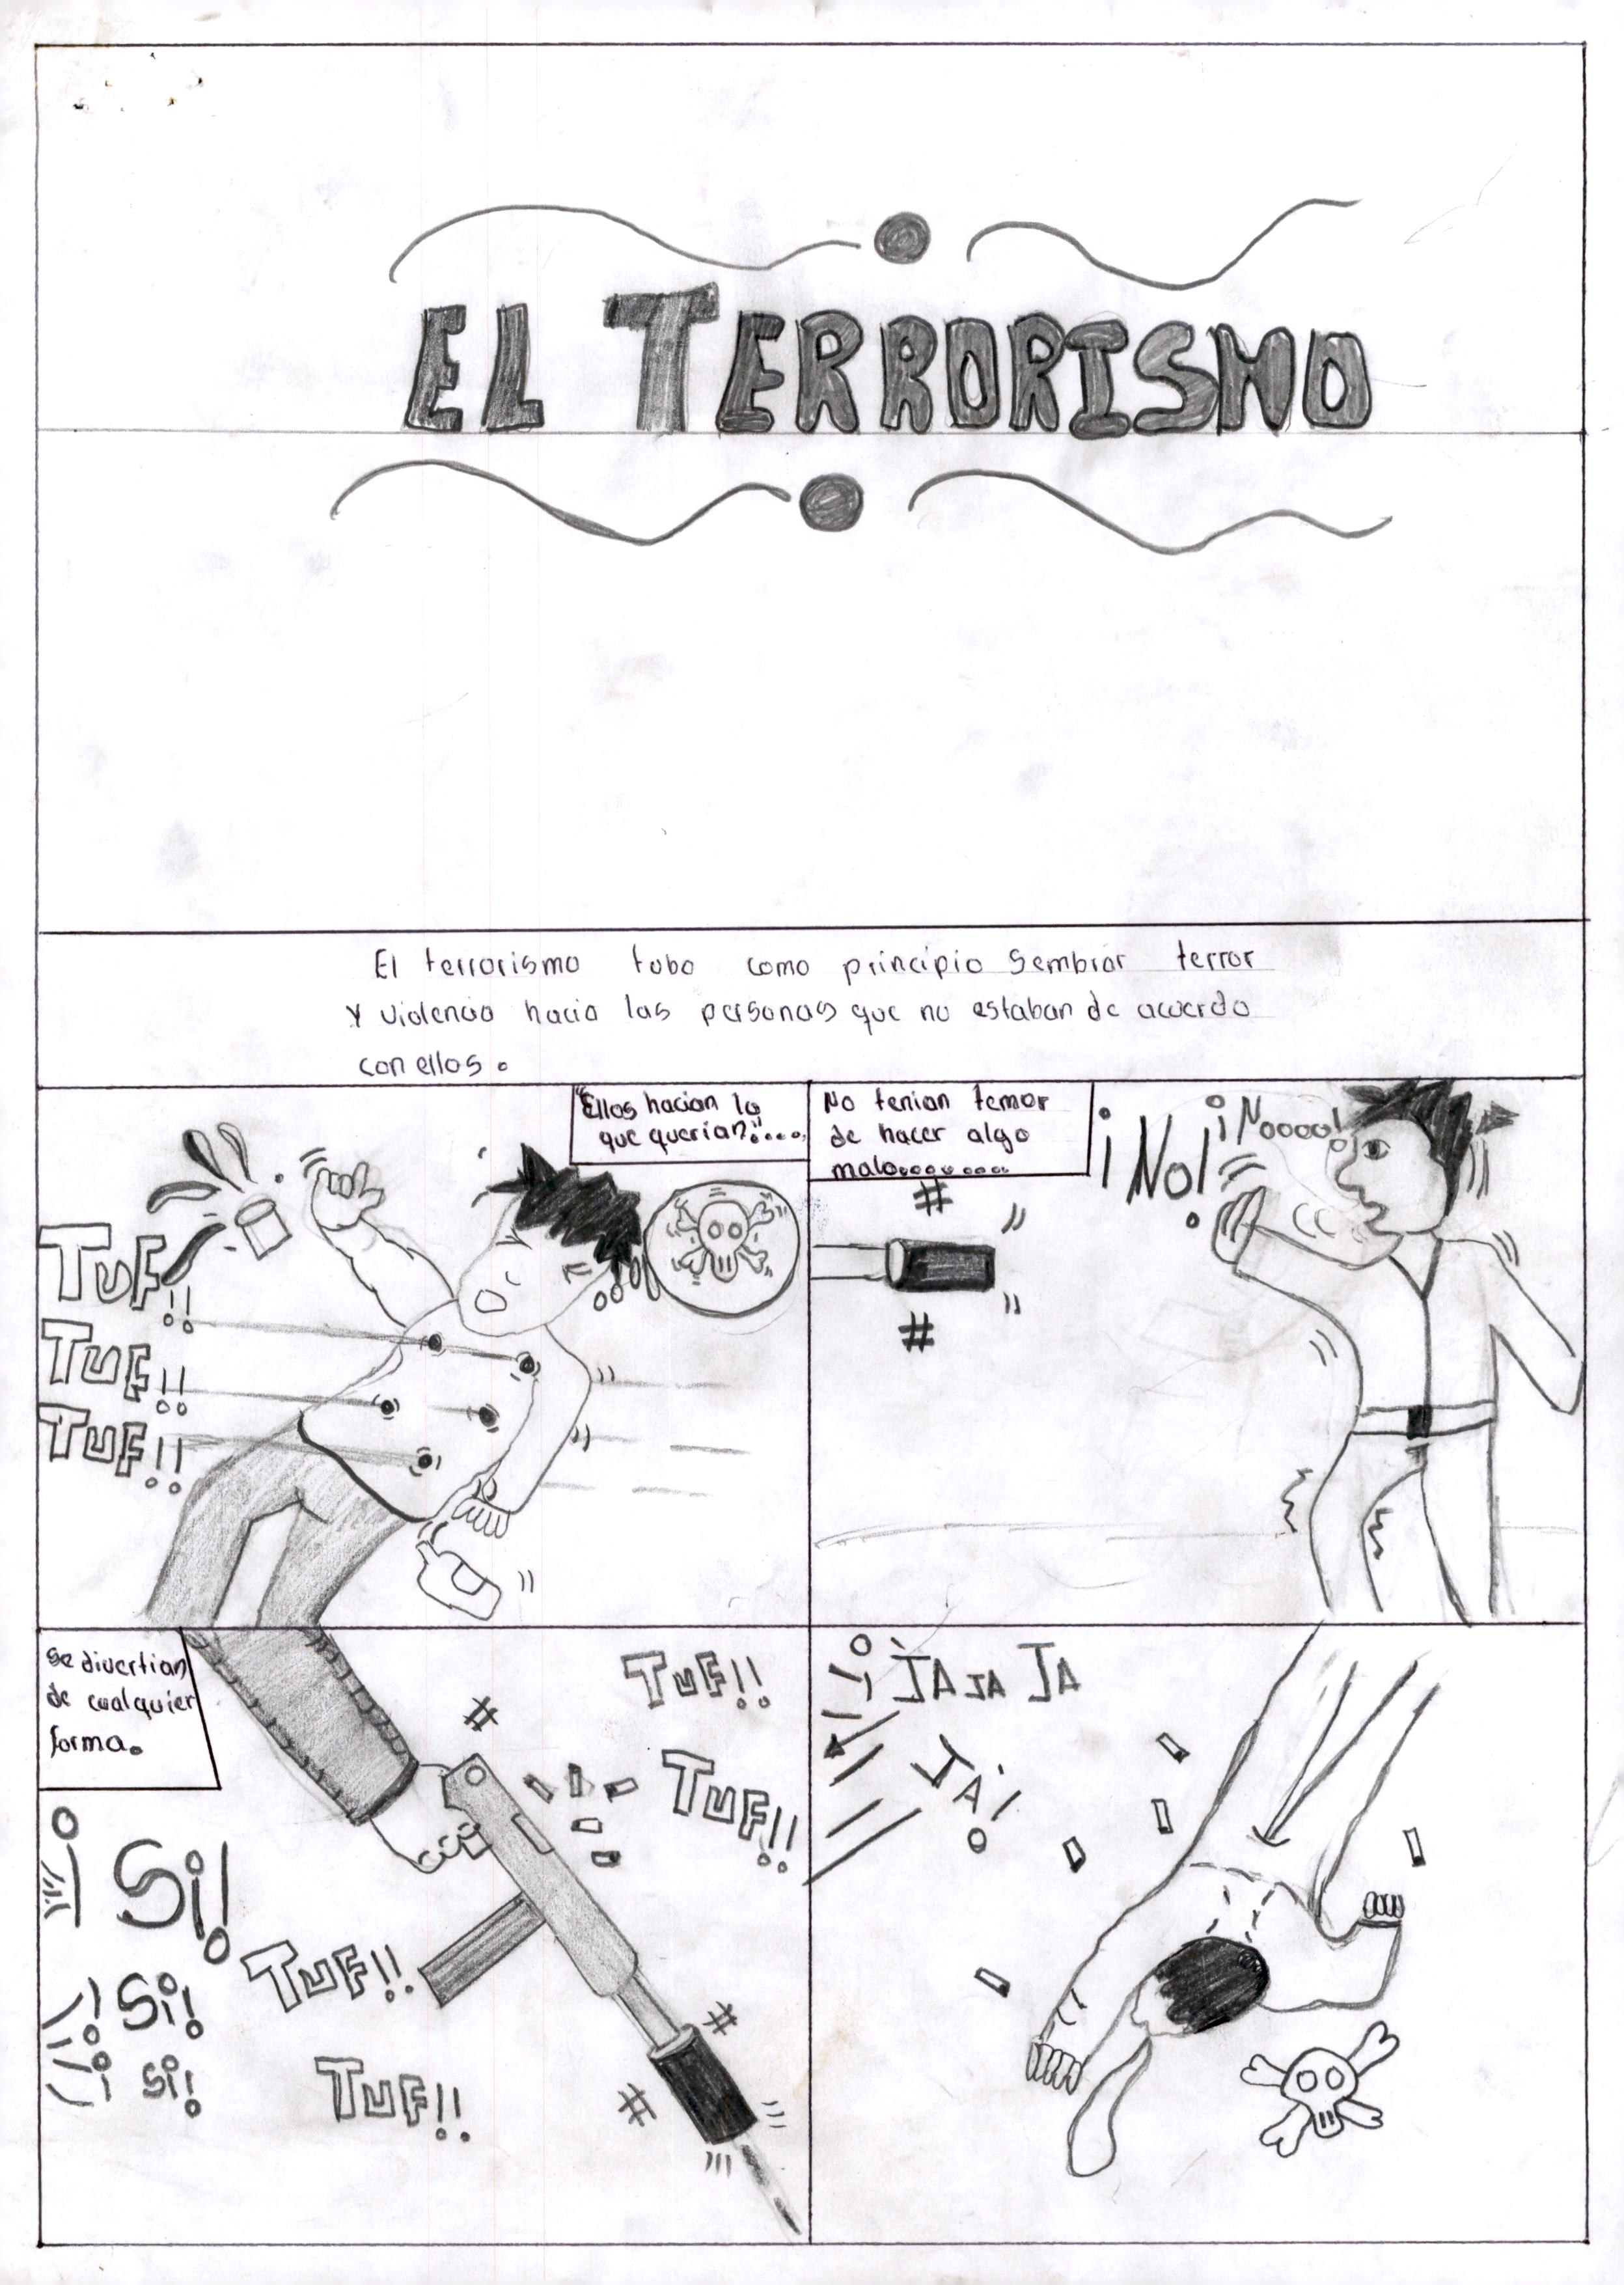 EL TERRORISMO
El terrorismo tubo como principio sembrar terror
y violencia hacia las personas que no estaban de acuerdo
con ellos.
"Ellos hacian lo
que querian"....
TUF!!
TUF!!
TUF!!
No tenian temor
de hacer algo
malo........
¡No!
¡Noooo!
Se divertian
de cualquier
forma.
¡Si!
¡Si!
¡Si!
TUF!!
TUF!!
TUF!!
TUF!!
¡JA JA JA
JA!